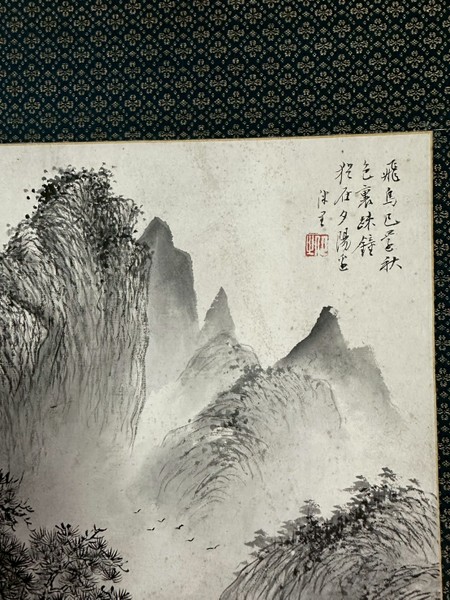 飛鳥已空秋
色裏疎鐘
猶在夕陽邊